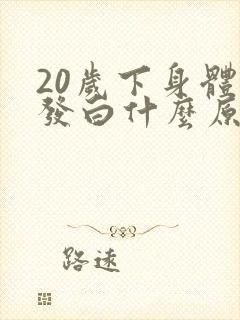 20歲下身體
發白什麼原
路遠